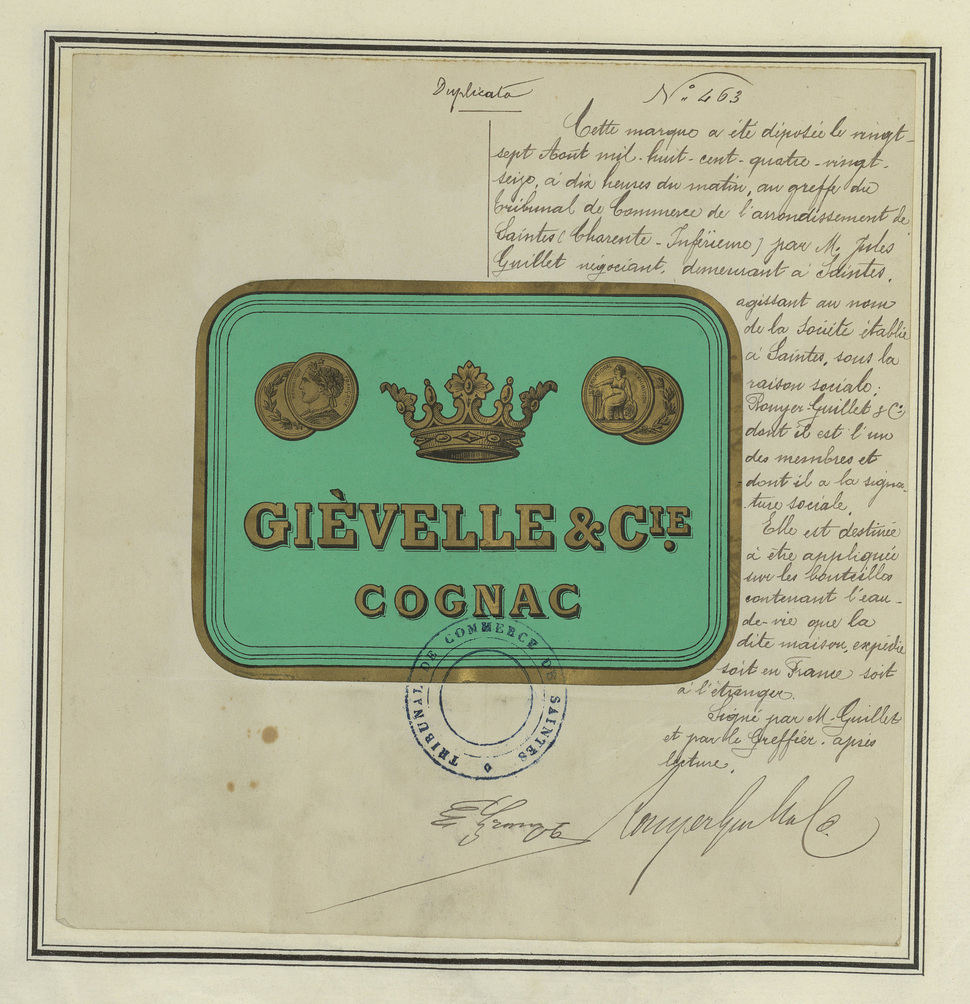 Duplicata
N° 463
Cette marque a été déposée le vingt-
sept Août mil-huit-cent-quatre-vingt-
seize, à dix heures du matin, au greffe du
tribunal de Commerce de l'arrondissement de
Saintes (Charente-Inférieure) par M. Jules
Guillet négociant, demeurant à Saintes,
agissant au nom
de la Société établie
à Saintes, sous la
raison sociale:
Rouyer-Guillet & Cie
dont il est l'un
des membres et
dont il a la signa-
ture sociale.
Elle est destinée
à être appliquée
sur les bouteilles
contenant l'eau-
de-vie que la
dite maison, expédie
soit en France soit
à l'étranger.
Signé par M. Guillet
et par le Greffier. après
lecture.
GIÈVELLE & CIE
COGNAC
TRIBUNAL DE COMMERCE DE SAINTES
Rouyer Guillet & Co